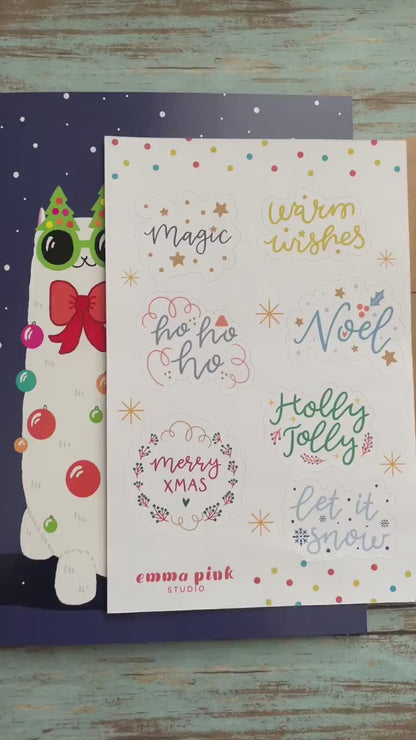 Magic
warm
wishes
ho ho
ho
Noel
merry
XMAS
Holly
Jolly
let it
snow
emma pink
STUDIO